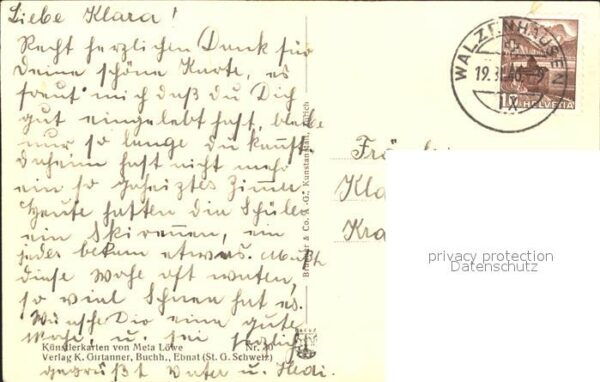 Liebe Klara!
Recht herzlichen Dank für
Deine schöne Karte, es
freut mich daß du Dich
gut eingelebt hast, bleibe
nur so lange du kannst.
Daheim hast nicht mehr
ein so geheiztes Zimmer
Heute hatten die Schüler
ein Skirennen, ein
jedes bekam etwas. Mußte
diese Woche oft
so viel Schnee hat es.
Wünsche Dir eine gute
Woche, u. sei herzlich
gegrüßt Vater u. Hedi.
Künstlerkarten von Meta Löwe Nr. 40
Verlag K. Girtanner, Buchh., Ebnat (St. G. Schweiz)
& Co. A.-G., Kunstanstalt, Zürich
WALZENHAUSEN
19. 9
IX
HELVETIA
Frä
Kla
Kra
privacy protection
Datenschutz